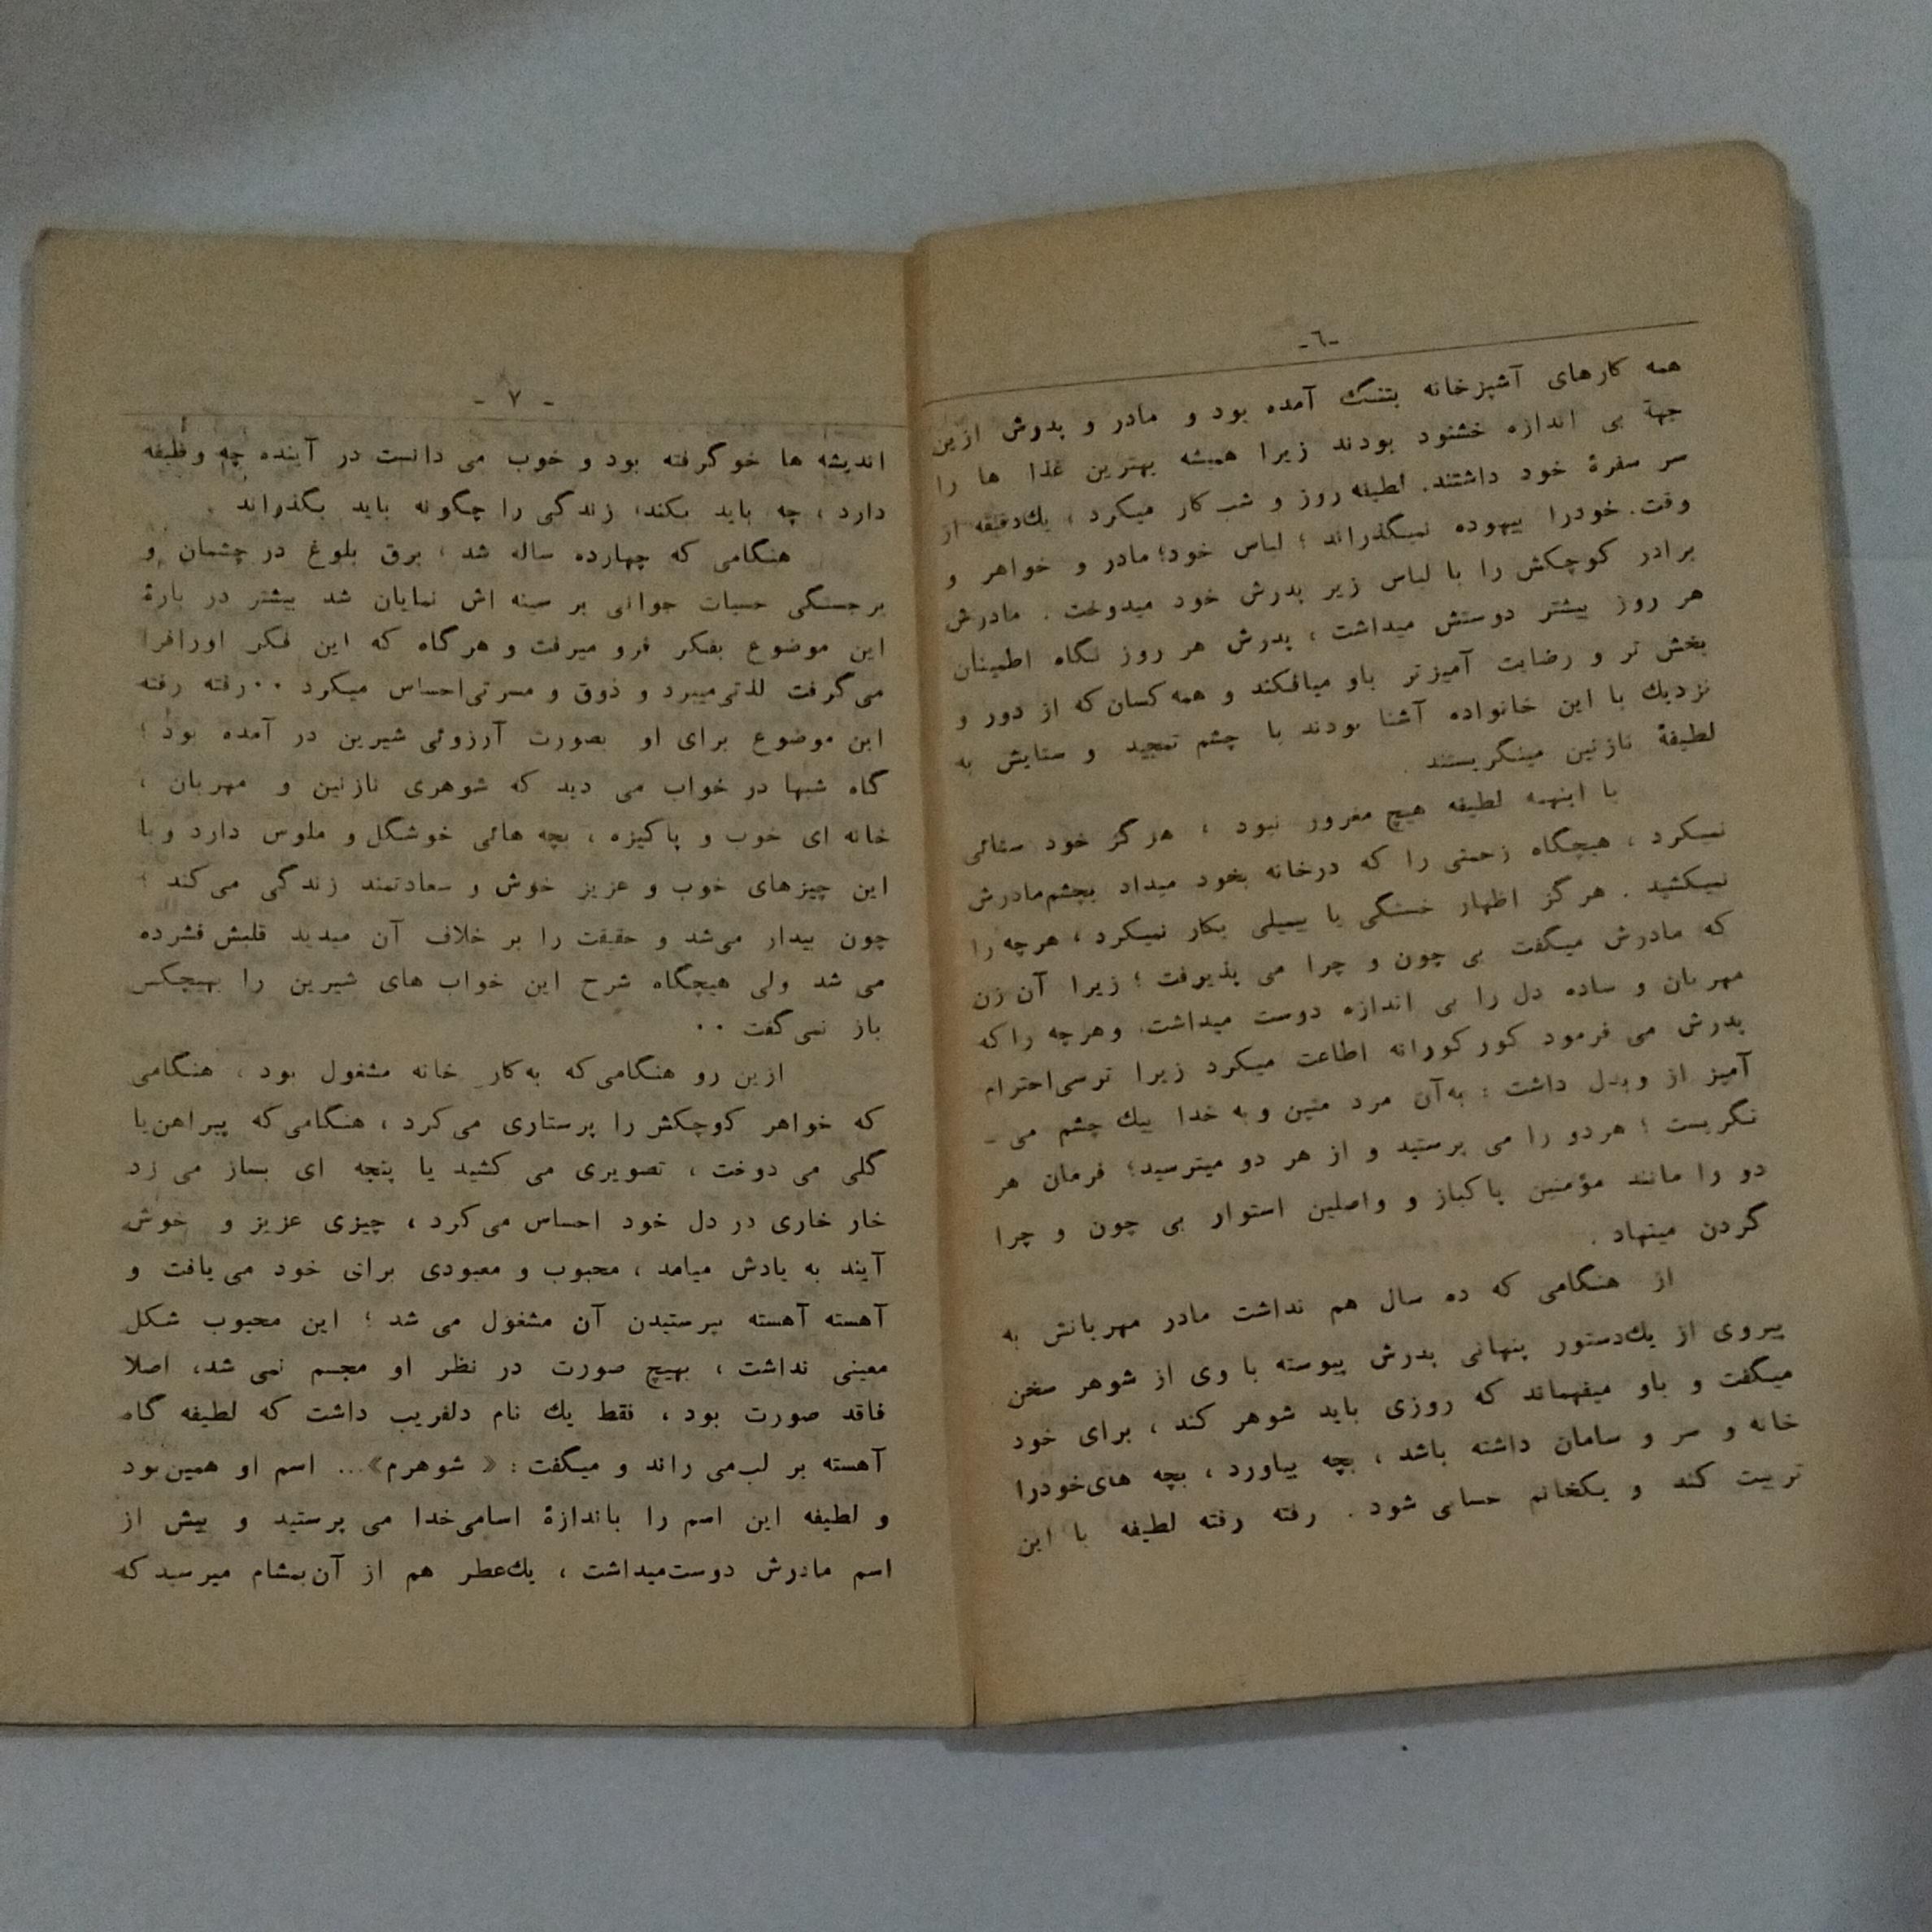 -٦-
همه کارهای آشپزخانه بتنگ آمده بود و مادر و پدرش ازین
جهة بی اندازه خشنود بودند زیرا همیشه بهترین غذا ها را
سر سفرهٔ خود داشتند. لطیفه روز و شب کار میکرد ، یك‌دقیقه از
وقت. خودرا بیهوده نمیگذراند ؛ لباس خود؛ مادر و خواهر و
برادر کوچکش را با لباس زیر پدرش خود میدوخت . مادرش
هر روز بیشتر دوستش میداشت ، پدرش هر روز نگاه اطمینان
بخش تر و رضایت آمیزتر باو میافکند و همه کسان که از دور و
نزدیك با این خانواده آشنا بودند با چشم تمجید و ستایش به
لطیفهٔ نازنین مینگریستند .
با اینهمه لطیفه هیچ مغرور نبود ، هرگز خود ستائی
نمیکرد ، هیچگاه زحمتی را که درخانه بخود میداد بچشم‌مادرش
نمیکشید . هرگز اظهار خستگی یا بیمیلی بکار نمیکرد ، هرچه را
که مادرش میگفت بی چون و چرا می پذیرفت ؛ زیرا آن زن
مهربان و ساده دل را بی اندازه دوست میداشت. وهرچه راکه
پدرش می فرمود کورکورانه اطاعت میکرد زیرا ترسی‌احترام
آمیز از وبدل داشت : به‌آن مرد متین و به خدا بیك چشم می -
نگریست ؛ هردو را می پرستید و از هر دو میترسید؛ فرمان هر
دو را مانند مؤمنین پاکباز و واصلین استوار بی چون و چرا
گردن مینهاد .
از هنگامی که ده سال هم نداشت مادر مهربانش به
پیروی از یك‌دستور پنهانی پدرش پیوسته با وی از شوهر سخن
میگفت و باو میفهماند که روزی باید شوهر کند ، برای خود
خانه و سر و سامان داشته باشد ، بچه بیاورد ، بچه های‌خودرا
تربیت کند و یکخانم حسابی شود . رفته رفته لطیفه با این
- ٧ -
اندیشه ها خوگرفته بود و خوب می دانست در آینده چه وظیفه
دارد ، چه باید بکند، زندگی را چگونه باید بگذراند .
هنگامی که چهارده ساله شد ، برق بلوغ در چشمان و
برجستگی حسیات جوانی بر سینه اش نمایان شد بیشتر در بارهٔ
این موضوع بفکر فرو میرفت و هرگاه که این فکر اورافرا
می‌گرفت لذتی‌میبرد و ذوق و مسرتی‌احساس میکرد ..رفته رفته
این موضوع برای او بصورت آرزوئی شیرین در آمده بود ؛
گاه شبها در خواب می دید که شوهری نازنین و مهربان ،
خانه ای خوب و پاکیزه ، بچه هائی خوشگل و ملوس دارد و با
این چیزهای خوب و عزیز خوش و سعادتمند زندگی می‌کند ؛
چون بیدار می‌شد و حقیقت را بر خلاف آن میدید قلبش فشرده
می شد ولی هیچگاه شرح این خواب های شیرین را بهیچکس
باز نمی‌گفت ..
ازین رو هنگامی‌که به‌کار خانه مشغول بود ، هنگامی
که خواهر کوچکش را پرستاری می‌کرد ، هنگامی‌که پیراهن‌یا
گلی می دوخت ، تصویری می کشید یا پنجه ای بساز می زد
خار خاری در دل خود احساس می‌کرد ، چیزی عزیز و خوش
آیند به یادش میامد ، محبوب و معبودی برای خود می‌یافت و
آهسته آهسته بپرستیدن آن مشغول می شد ؛ این محبوب شکل
معینی نداشت ، بهیچ صورت در نظر او مجسم نمی شد، اصلا
فاقد صورت بود ، فقط یك نام دلفریب داشت که لطیفه گاه
آهسته بر لب‌می راند و میگفت : « شوهرم»... اسم او همین‌بود
و لطیفه این اسم را باندازهٔ اسامی‌خدا می پرستید و بیش از
اسم مادرش دوست‌میداشت ، یك‌عطر هم از آن‌بمشام میرسید که